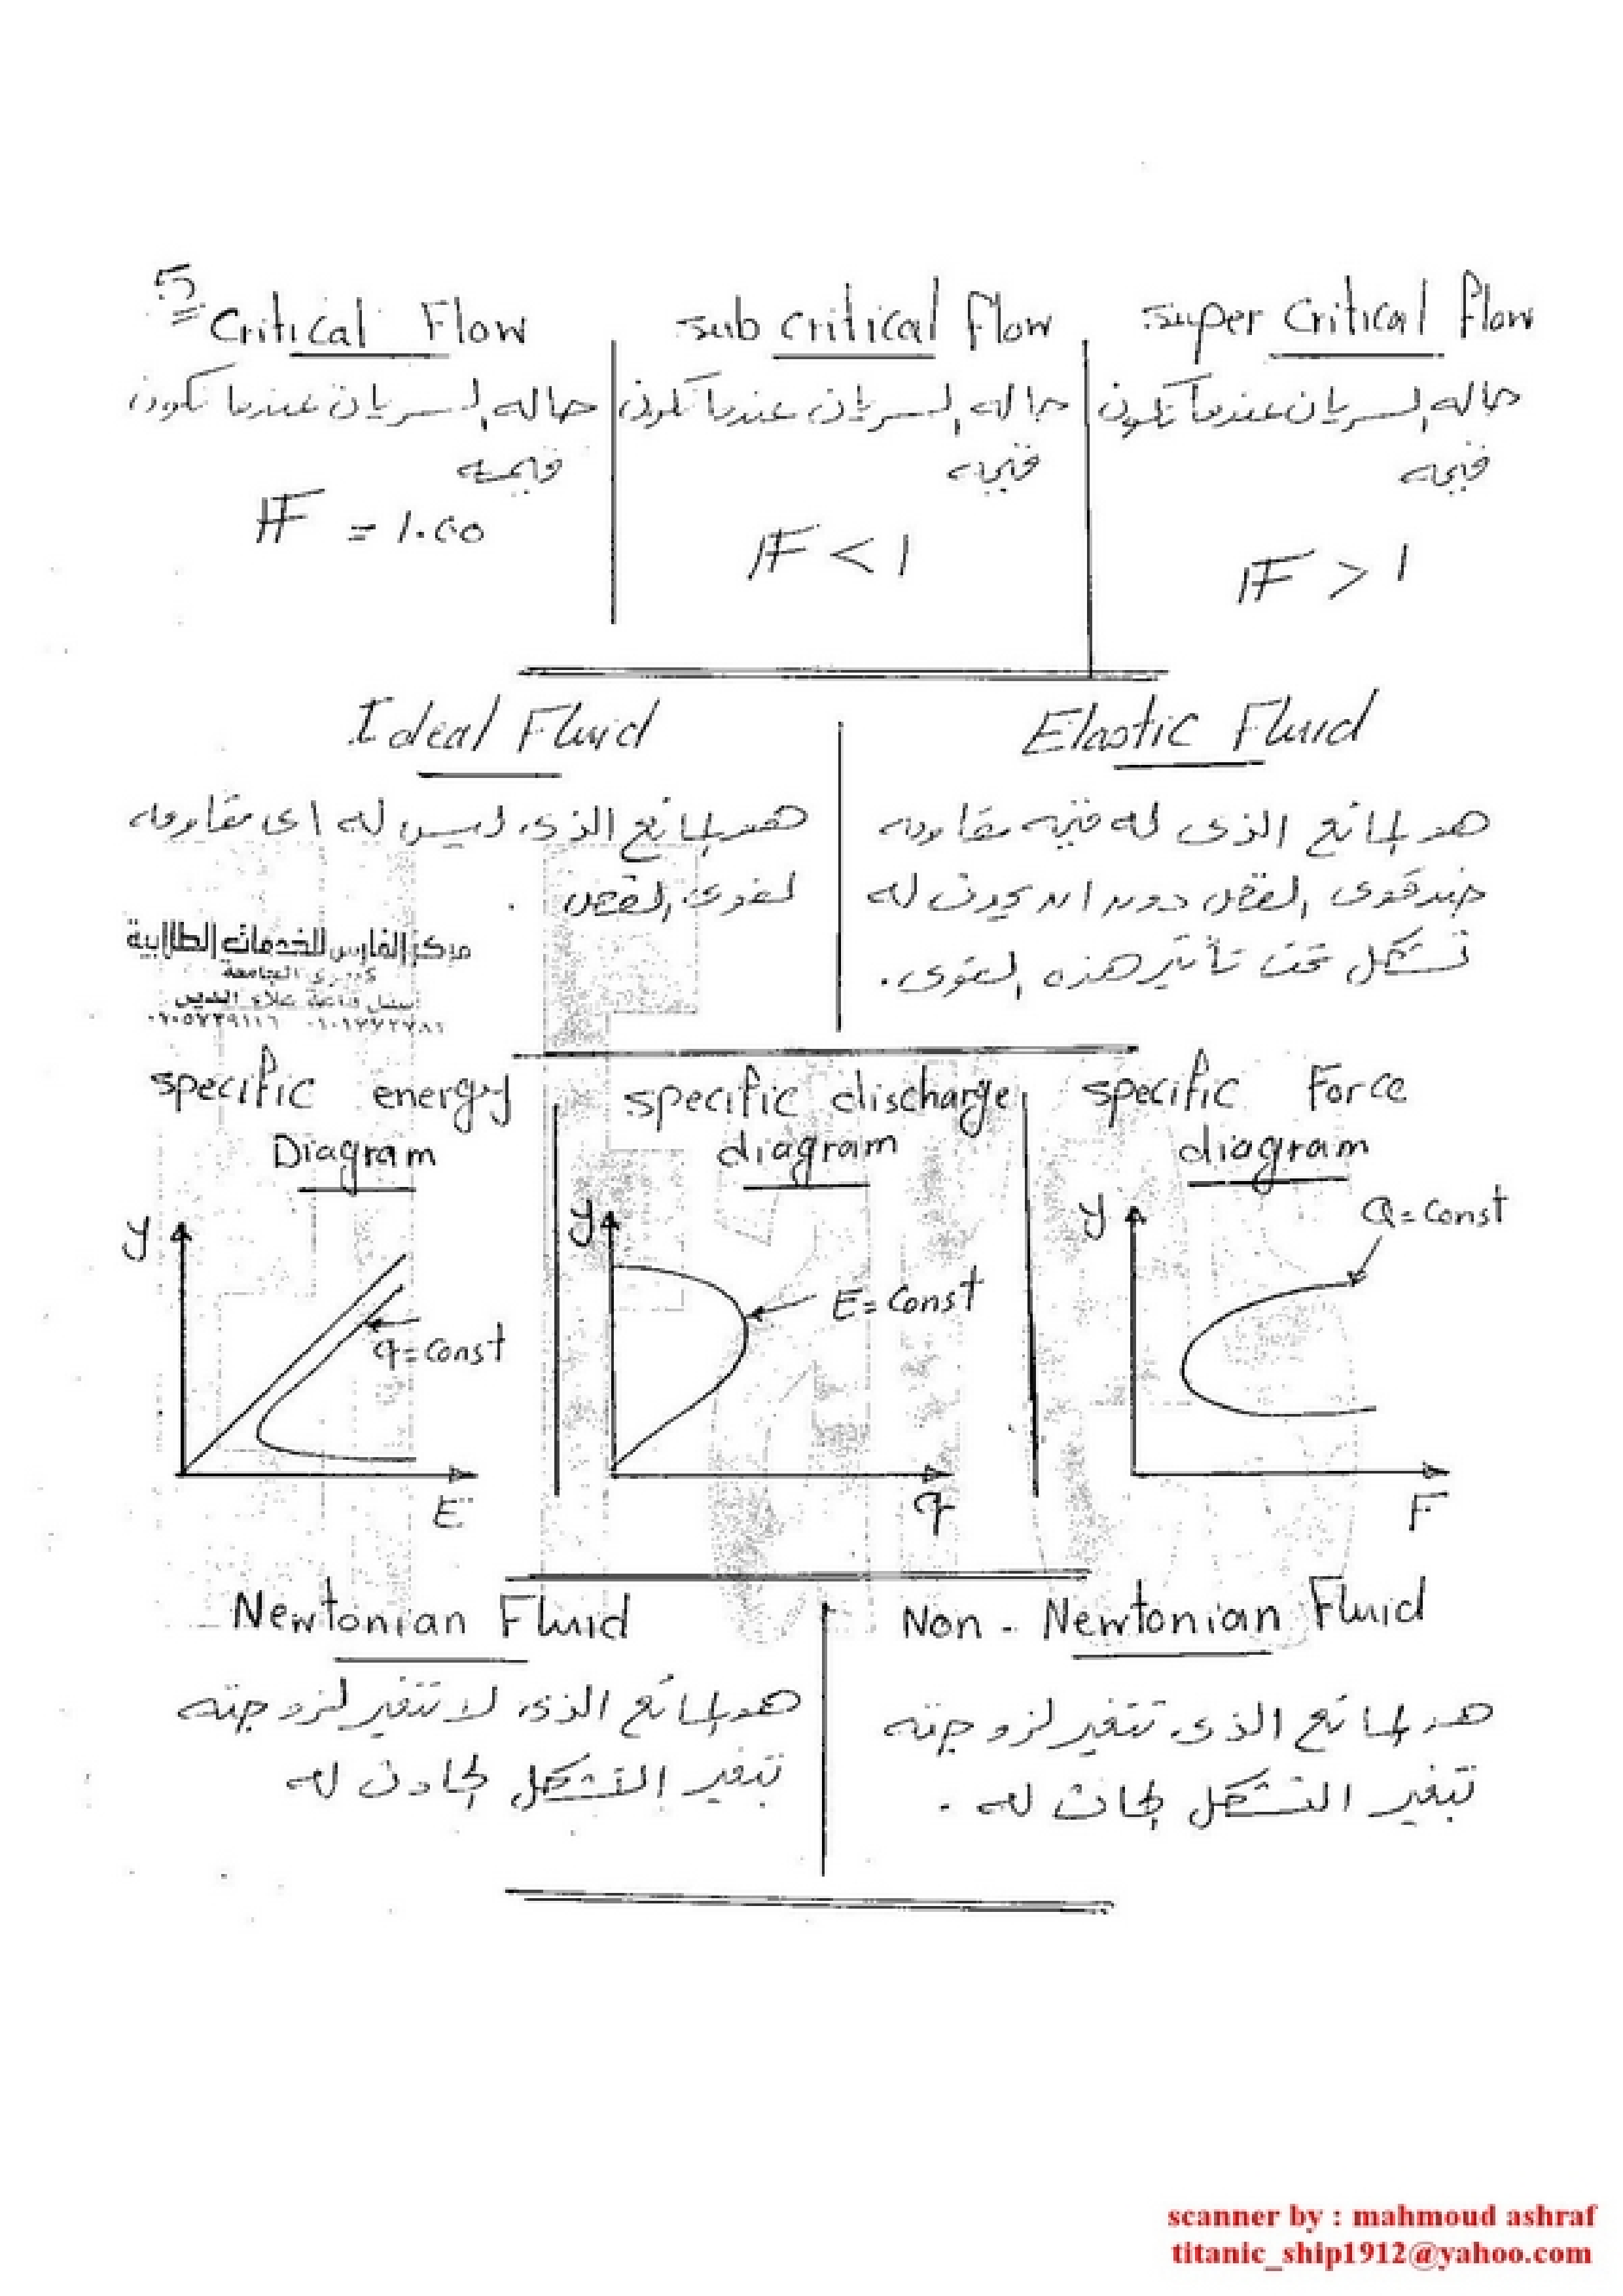 5
Critical Flow
حاله السريان عندما تكون
قيمه
IF = 1.00
sub critical flow
حاله السريان عندما تكون
قيمه
IF < 1
super critical flow
حاله السريان عندما تكون
قيمه
IF > 1
Ideal Fluid
هو المائع الذى ليس له اى مقاومه
لقوى القص .
Elastic Fluid
هو المائع الذى له قيمه مقاومه
ضد قوى القص دون ان يحدث له
تشكل تحت تأثير هذه القوى .
مركز الفارس للخدمات الطلابية
علاء الدين
specific energy
Diagram
y
q = const
E
specific discharge
diagram
y
E = const
q
specific Force
diagram
y
Q = const
F
Newtonian Fluid
هو المائع الذى لا تتغير لزوجته
بتغير التشكل الحادث له
Non - Newtonian Fluid
هو المائع الذى تتغير لزوجته
بتغير التشكل الحادث له .
scanner by : mahmoud ashraf
titanic_ship1912@yahoo.com